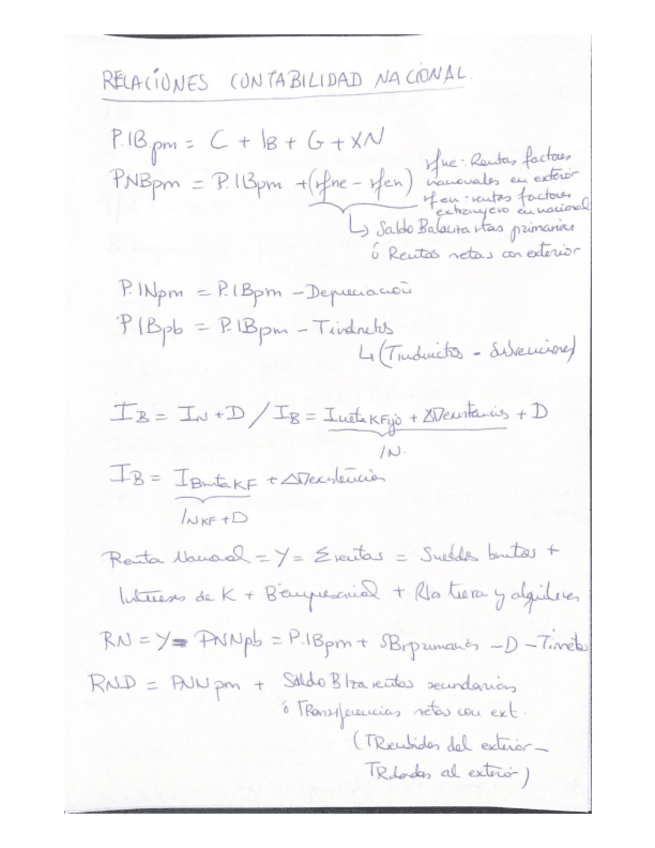 RELACIONES CONTABILIDAD NACIONAL.
P.IBpm = C + IB + G + XN
PNBpm = P.IBpm + (rfne - rfen)
rfne: Rentas factores
nacionales en exterior
rfen: rentas factores
extranjero en nacional
↳ Saldo Balanza rtas primarias
ó Rentas netas con exterior
P.INpm = P.IBpm - Depreciación
P.IBpb = P.IBpm - Tindnetos
↳ (Tindirectos - Subvenciones)
IB = IN + D / IB = InetaKFijo + ΔDexistencias + D
IN.
IB = IBrutaKF + ΔDexistencias
INKF + D
Renta Nacional = Y = Σrentas = Sueldos brutos +
Intereses de K + Bºempresarial + Rta tierra y alquileres
RN = Y = PNNpb = P.IBpm + SBrprimarias - D - Tineto
RND = PNNpm + Saldo Blza rentas secundarias
ó Transferencias netas con ext.
(TRecibidas del exterior -
TRdadas al exterior)